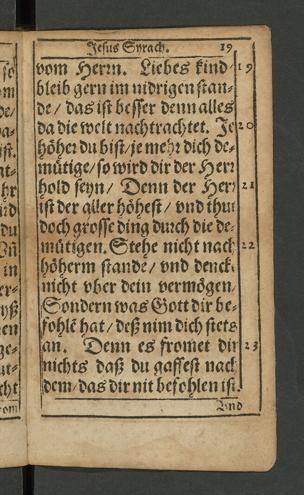 Jesus Syrach. 19
vom Herrn. Liebes kind 19
bleib gern im nidrigen stan-
de / das ist besser denn alles
da die welt nachtrachtet. Je 20
höher du bist / je mehr dich de-
mütige / so wird dir der Herr
hold seyn / Denn der Herr 21
ist der aller höhest / vnd thut
doch grosse ding durch die de-
mütigen. Stehe nicht nach 22
höherm stande / vnd dencke
nicht vber dein vermögen /
Sondern was Gott dir be-
fohlē hat / deß nim dich stets
an. Denn es fromet dir 23
nichts daß du gaffest nach
dem / das dir nit befohlen ist.
Vnd